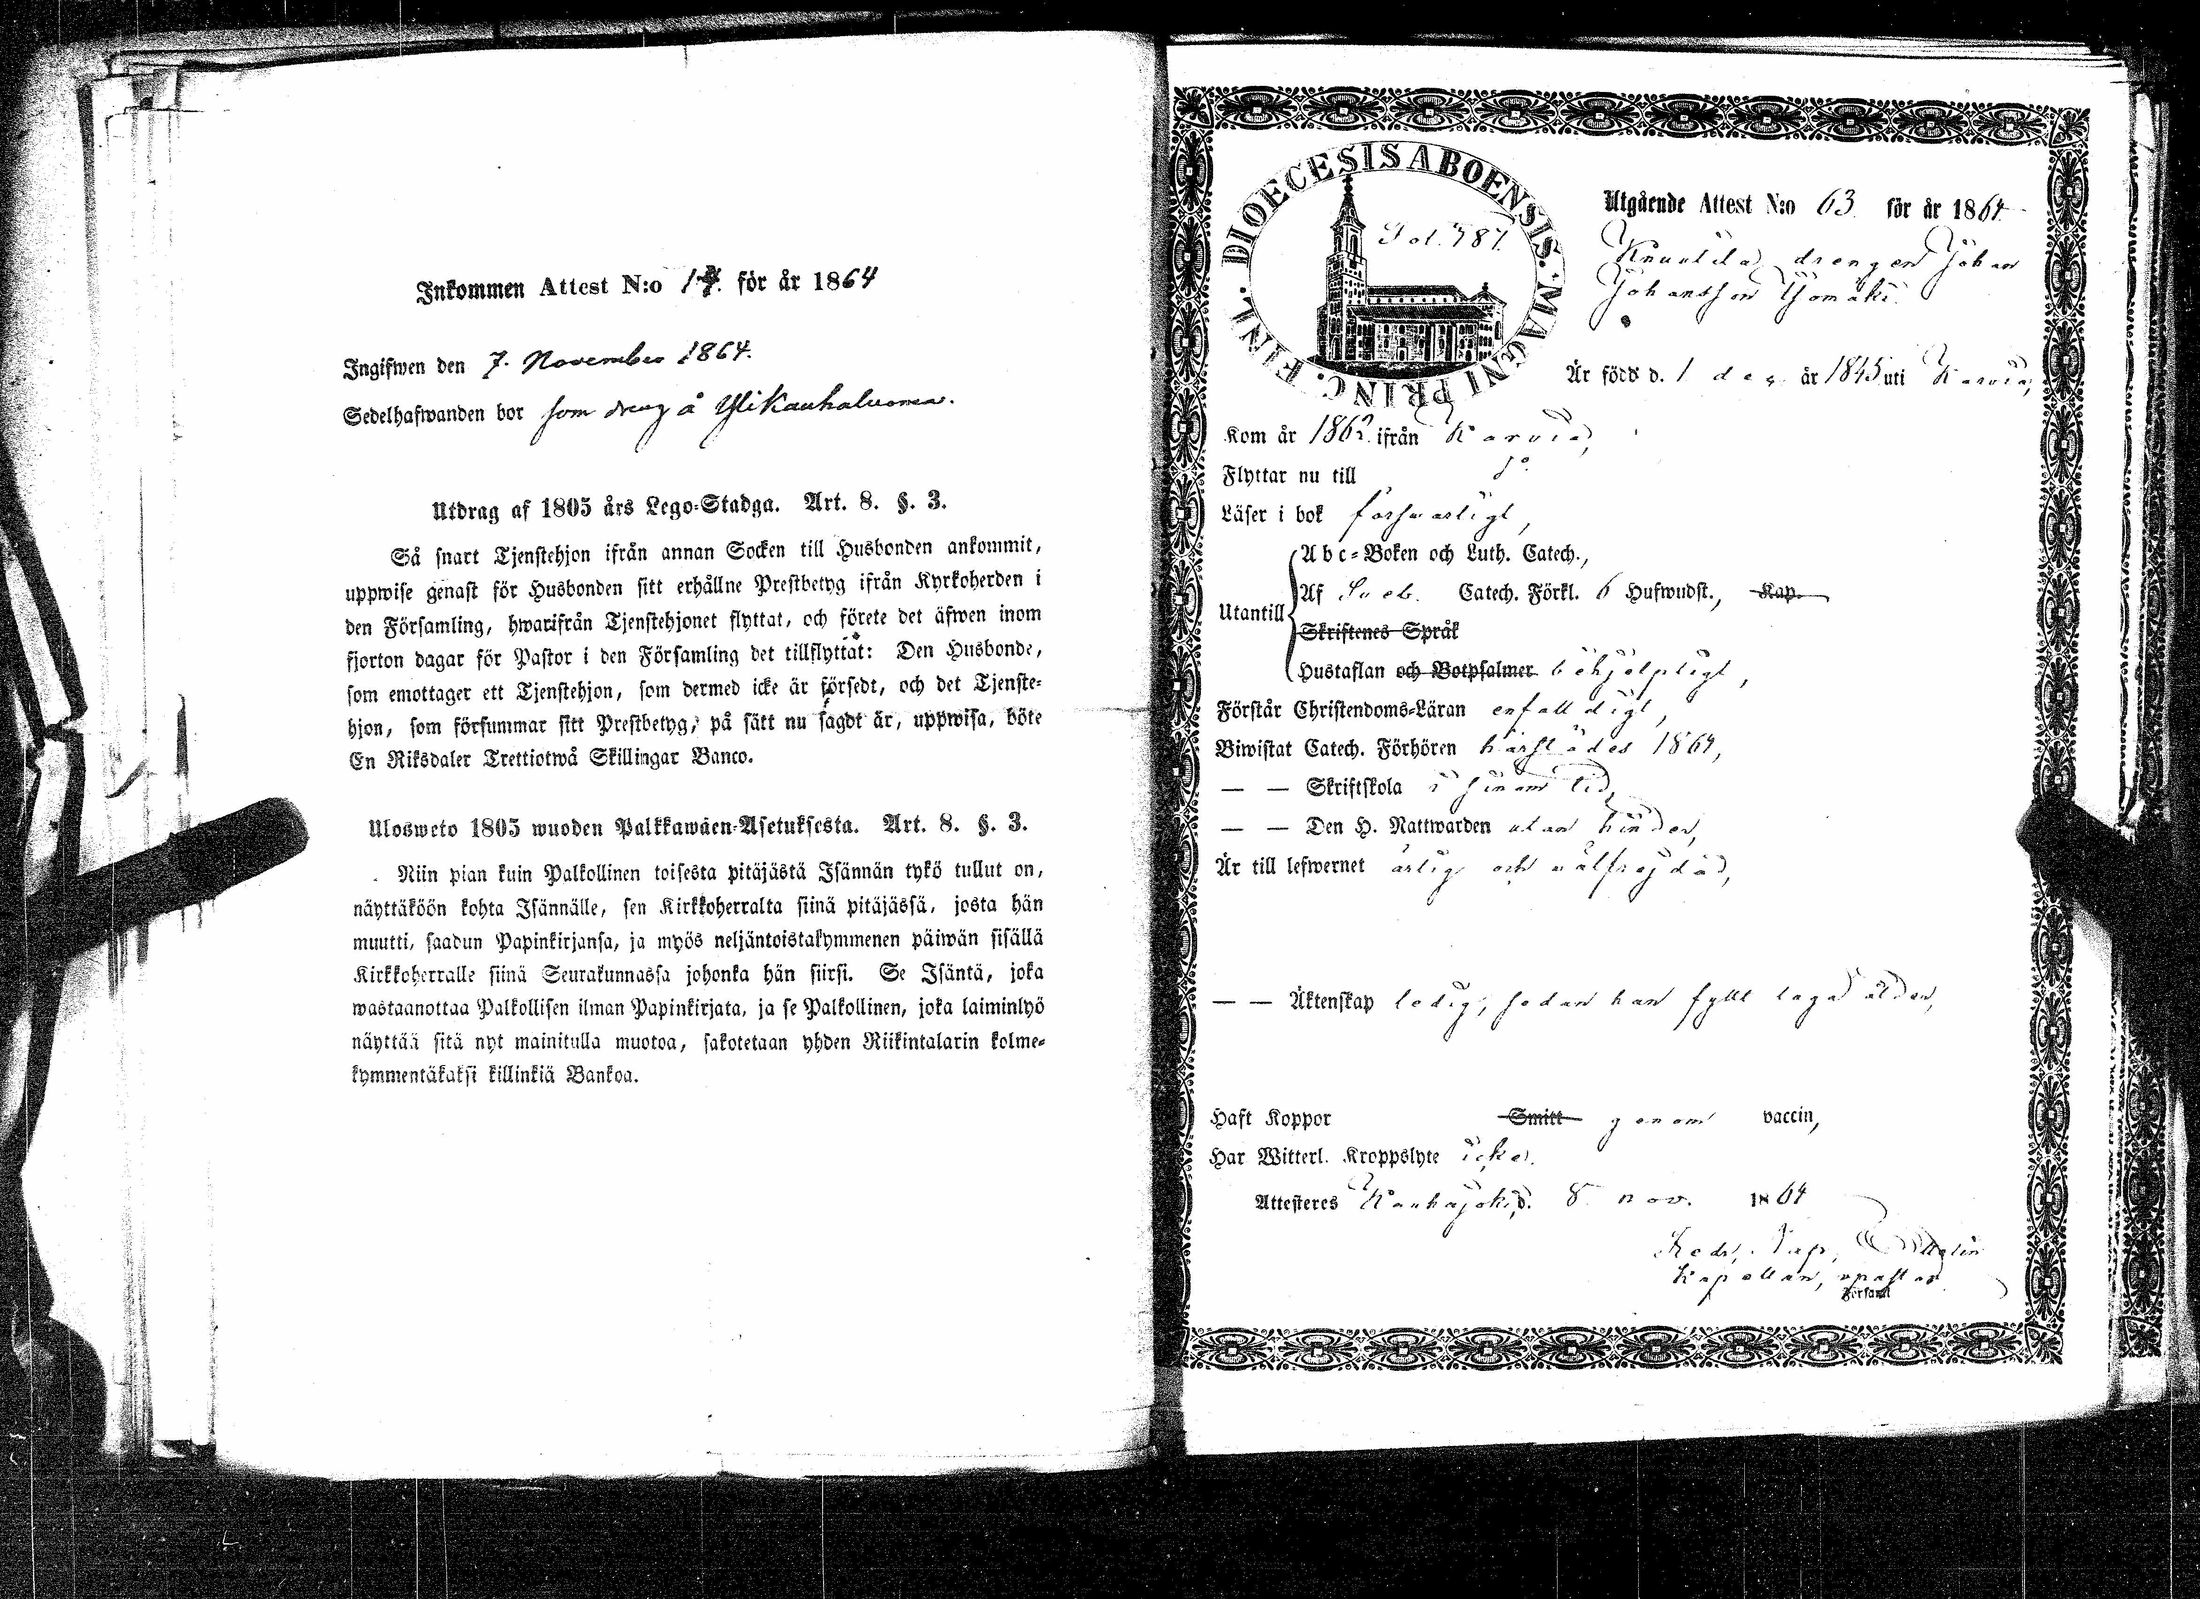 Inkommen Attest N:o för år 1864
Ingifwen den 7. November 1864.
Sedelhafwanden bor som dreng å Ylikauhaluoma.
Utdrag af 1805 års Lego-Stadga. Art. 8. §. 3.
Så snart Tjenstehjon ifrån annan Socken till Husbonden ankommit,
uppwise genast för Husbonden sitt erhållne Prestbetyg ifrån Kyrkoherden i
den Församling, hwarifrån Tjenstehjonet flyttat, och förete det äfwen inom
fjorton dagar för Pastor i den Församling det tillflyttat: Den Husbonde,
som emottager ett Tjenstehjon, som dermed icke är försedt, och det Tjenste-
hjon, som försummar sitt Prestbetyg, på sätt nu sagdt är, uppwisa, böte
En Riksdaler Trettiotwå Skillingar Banco.
Ulosweto 1805 wuoden Palkkawäen-Asetuksesta. Art. 8. §. 3.
Niin pian kuin Palkollinen toisesta pitäjästä Isännän tykö tullut on,
näyttäköön kohta Isännälle, sen Kirkkoherralta siinä pitäjässä, josta hän
muutti, saadun Papinkirjansa, ja myös neljäntoistakymmenen päiwän sisällä
Kirkkoherralle siinä Seurakunnassa johonka hän siirsi. Se Isäntä, joka
wastaanottaa Palkollisen ilman Papinkirjata, ja se Palkollinen, joka laiminlyö
näyttää sitä nyt mainitulla muotoa, sakotetaan yhden Riikintalarin kolme-
kymmentäkaksi killinkiä Bankoa.
DIOECESIS ABOENSIS. MAGNI PRINC. FINL.
Utgående Attest N:o 63 för år 1864
Knuutila drengen Johan
Johansson
Är född d. 1 dec. år 1845 uti Karvia,
Kom år 1862 ifrån Karvia,
Flyttar nu till do.
Läser i bok försvarligt,
Abc-Boken och Luth. Catech.,
Utantill
Af Sveb. Catech. Förkl. 6 Hufwudst., Kap.
Skriftenes Språk
Hustaflan och Botpsalmer behjelpligt,
Förstår Christendoms-Läran enfaldigt,
Biwistat Catech. Förhören härstädes 1864,
— — Skriftskola i sinom tid,
— — Den H. Nattwarden utan hinder,
Är till lefwernet ärlig och välfrejdad,
— — Äktenskap ledig, sedan han fyllt laga ålder,
Haft Koppor Smitt genom vaccin,
Har Witterl. Kroppslyte icke.
Attesteres Kauhajoki, d. 8 nov. 1864
Kapellan,
Församl